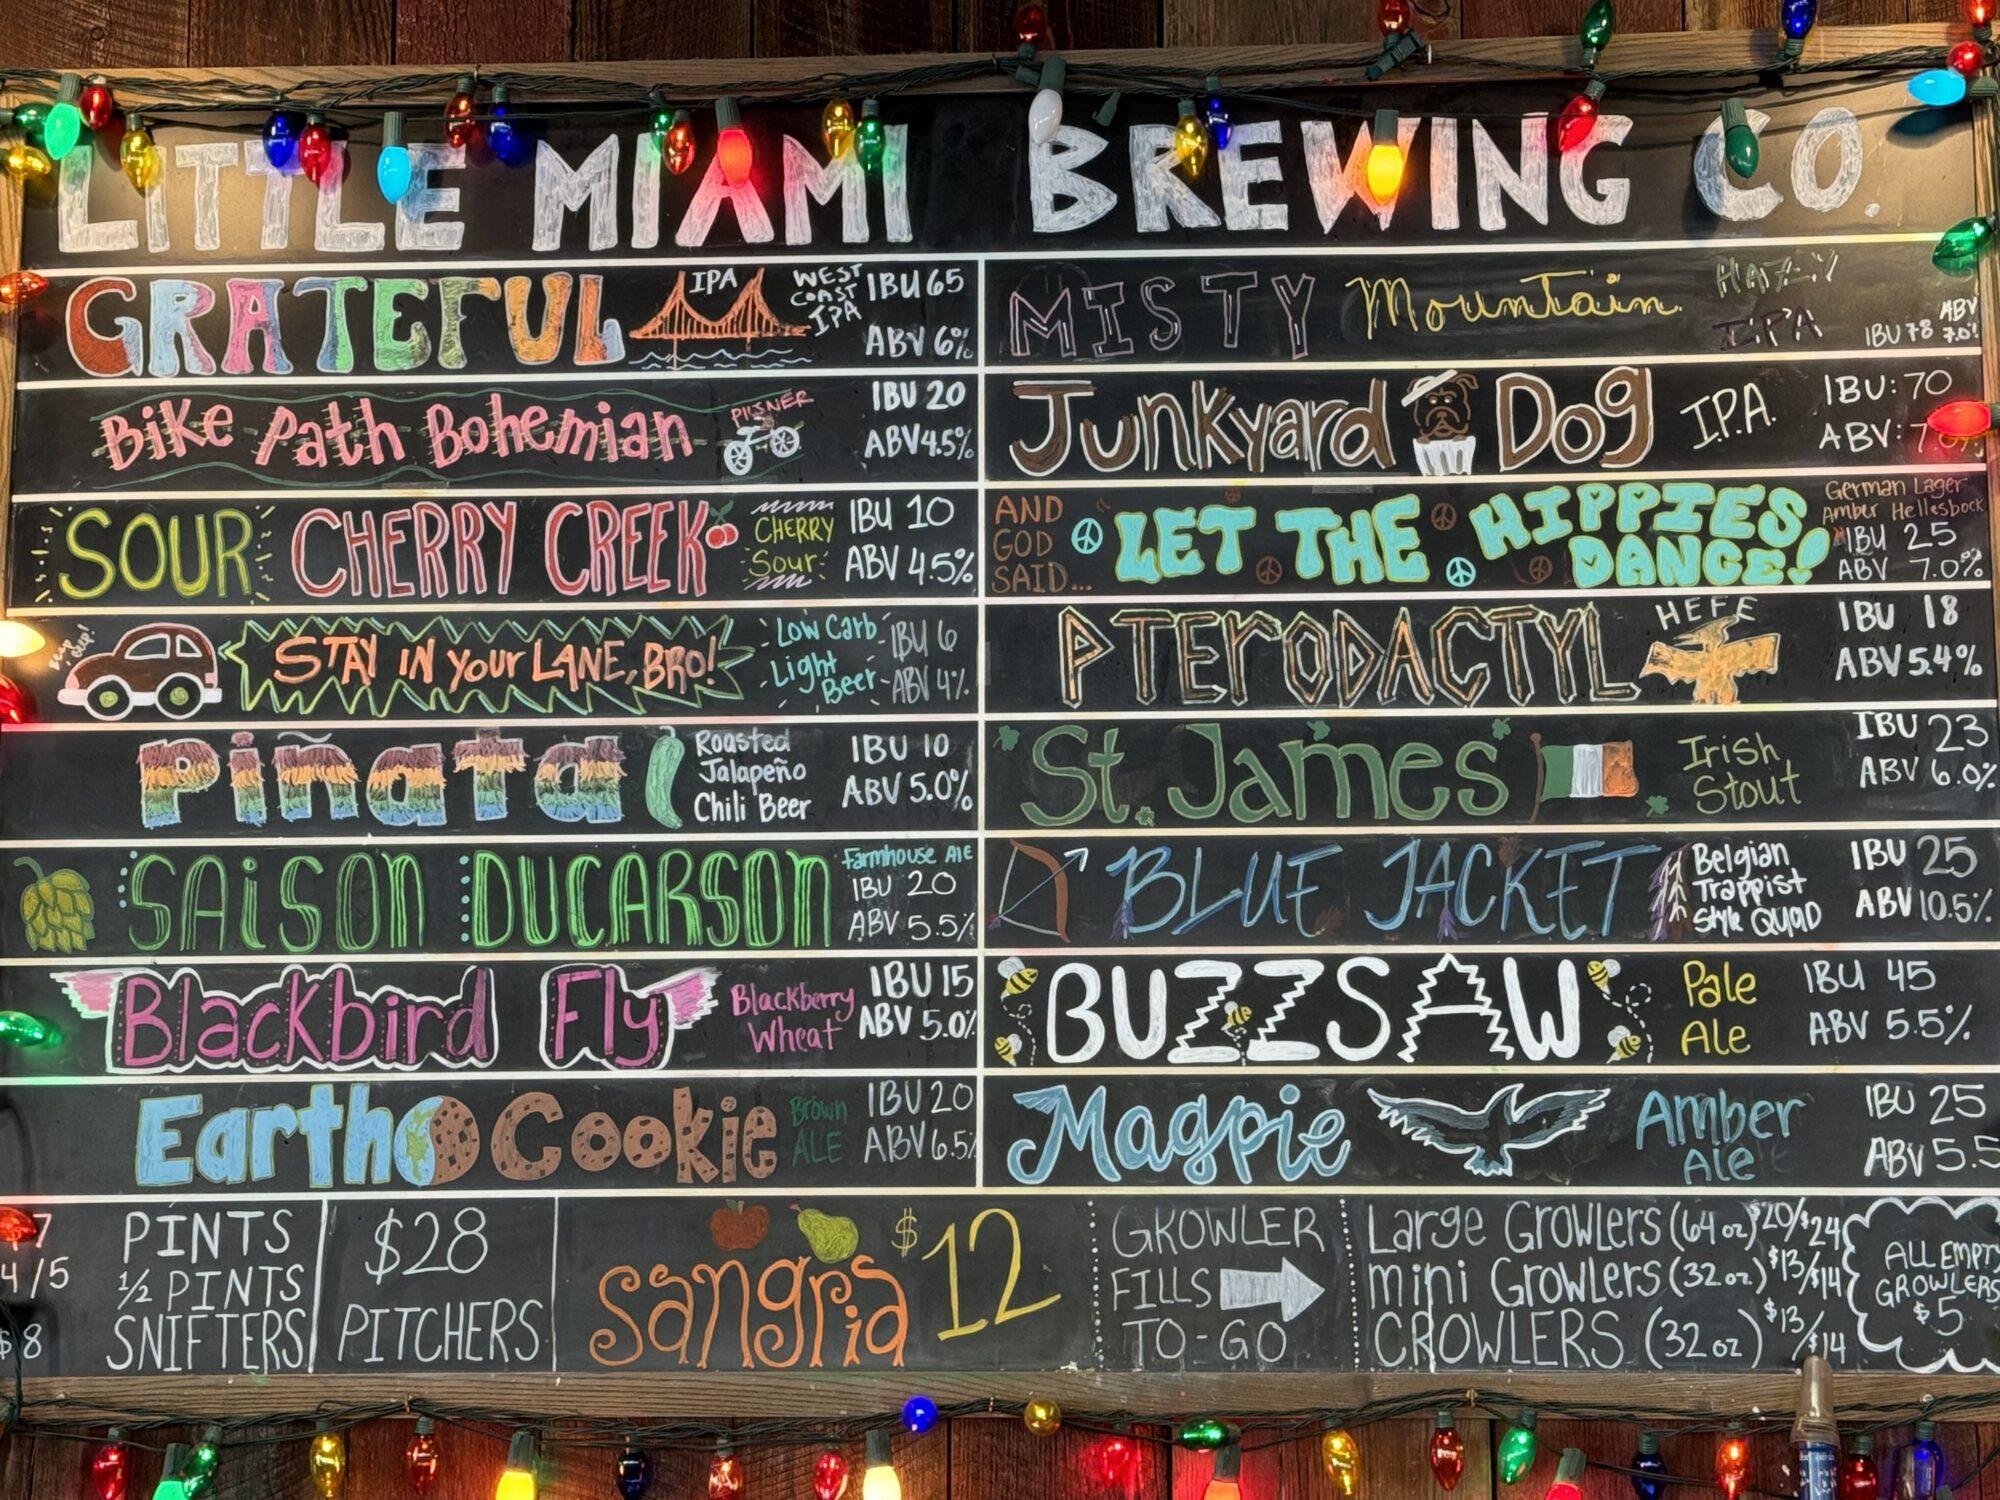 LITTLE MIAMI BREWING CO.
GRATEFUL IPA WEST COAST IPA IBU 65 ABV 6%
Bike Path Bohemian PILSNER IBU 20 ABV 4.5%
SOUR CHERRY CREEK CHERRY Sour IBU 10 ABV 4.5%
BEEP BEEP! STAY IN your LANE, BRO! Low Carb Light Beer IBU 6 ABV 4%
Piñata Roasted Jalapeño Chili Beer IBU 10 ABV 5.0%
SAiSON DUCARSON Farmhouse Ale IBU 20 ABV 5.5%
Blackbird Fly Blackberry Wheat IBU 15 ABV 5.0%
Earth Cookie Brown ALE IBU 20 ABV 6.5%
MISTY Mountain HAZY IPA IBU 78 ABV 7.0%
Junkyard Dog I.P.A. IBU: 70 ABV: 7.0%
AND GOD SAID... LET THE HIPPIES DANCE! German Lager Amber Hellesbock IBU 25 ABV 7.0%
PTERODACTYL HEFE IBU 18 ABV 5.4%
St. James Irish Stout IBU 23 ABV 6.0%
BLUE JACKET Belgian Trappist Style QUAD IBU 25 ABV 10.5%
BUZZSAW Pale Ale IBU 45 ABV 5.5%
Magpie Amber Ale IBU 25 ABV 5.5
7 PINTS
4/5 1/2 PINTS
$8 SNIFTERS
$28 PITCHERS
Sangria $12
GROWLER FILLS TO-GO
Large Growlers (64 oz) $20/$24
mini Growlers (32 oz) $13/$14
CROWLERS (32 oz) $13/$14
ALL EMPTY GROWLERS $5